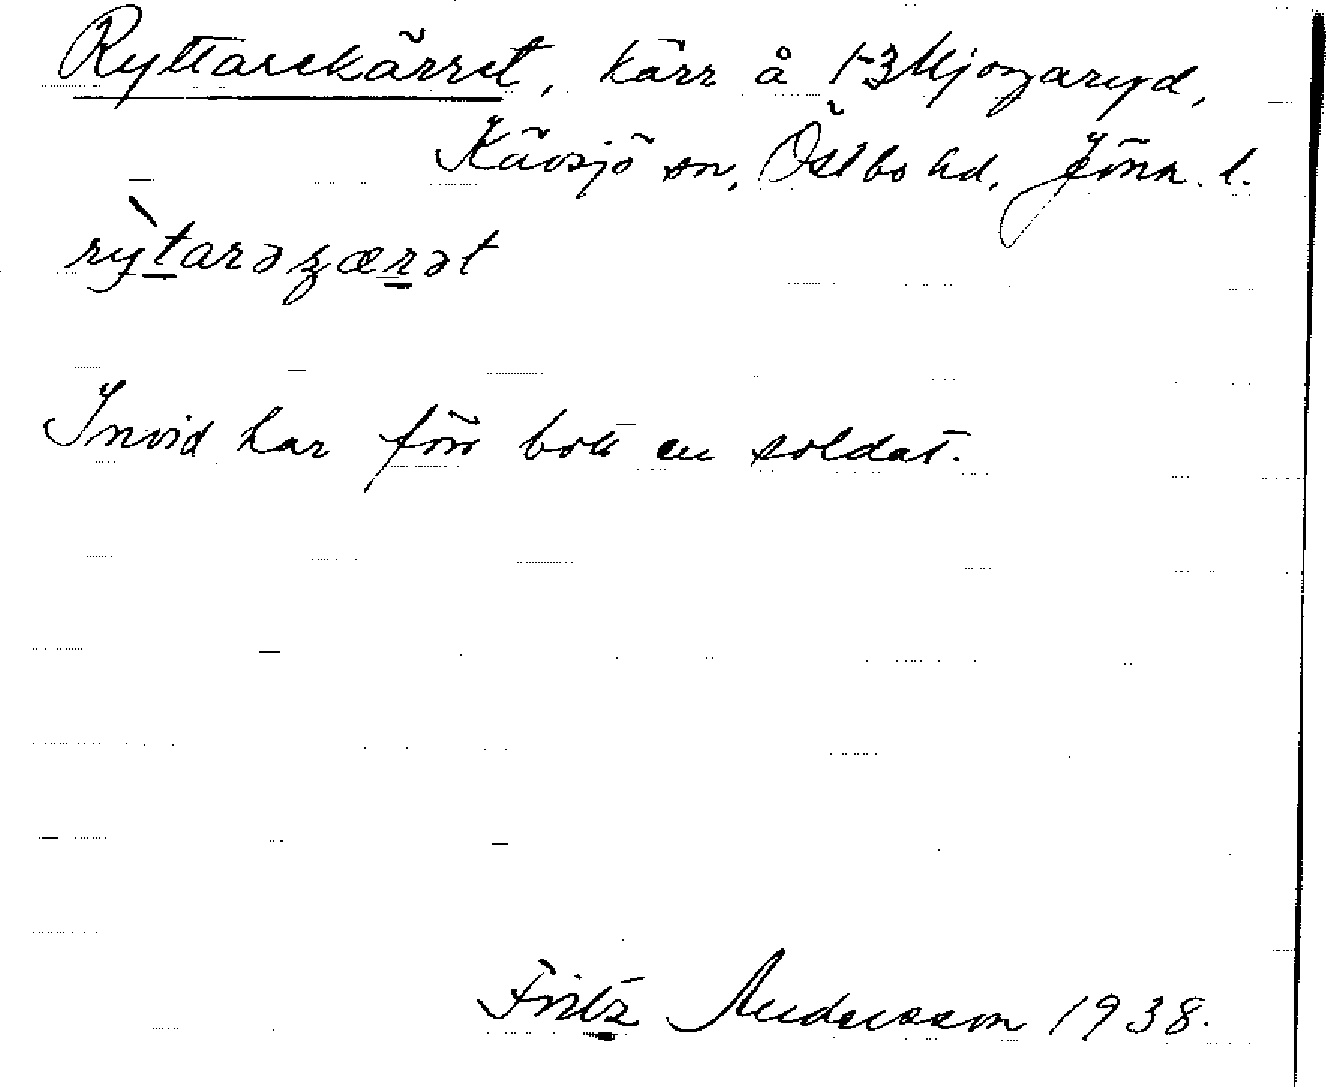 Ryttarekärret, kärr å 1-3 Mjogaryd,
Kävsjö sn, Östbo hd, Jönk. l.
rỳtarəʓærət
Invid har förr bott en soldat.
Fritz Andersson 1938.